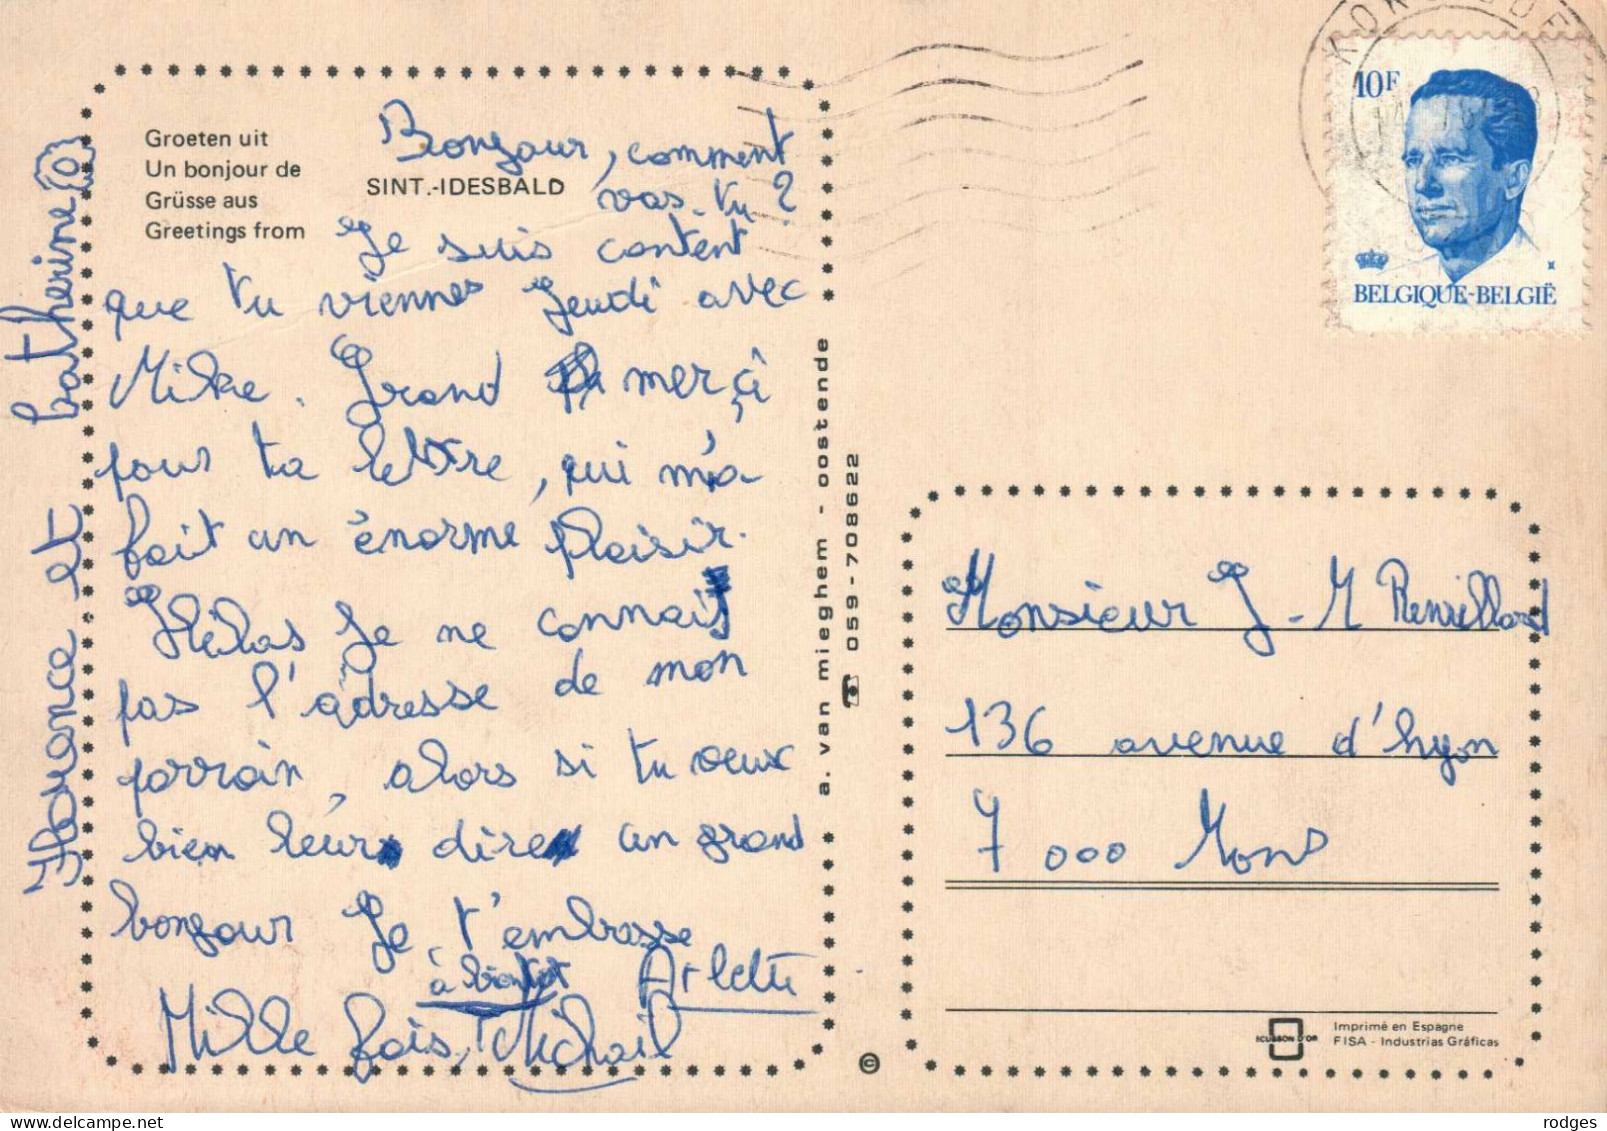 Groeten uit
Un bonjour de
Grüsse aus
Greetings from
SINT.-IDESBALD
Bonjour, comment
vas-tu ?
Je suis content
que tu viennes Jeudi avec
Mike. Grand merçi
pour ta lettre, qui m'a
fait un énorme plaisir.
Hélas Je ne connais
pas l'adresse de mon
parrain, alors si tu veux
bien leur dire un grand
bonjour Je t'embrasse
à bientot Arlette
Mille fois, Michaïl
et Catherine
a. van mieghem - oostende
059-708622
10F
BELGIQUE-BELGIË
Monsieur J-M
136 avenue d'hyon
7000 Mons
ECUSSON D'OR
Imprimé en Espagne
FISA - Industrias Gráficas
©
rodges